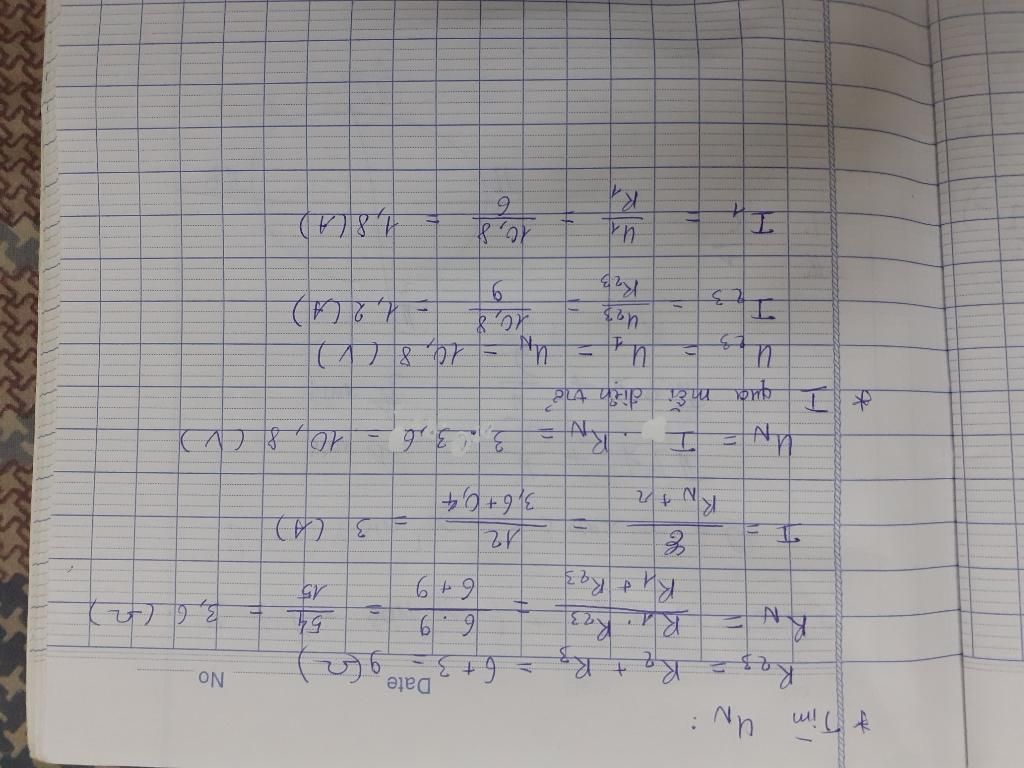 * Tìm U_N :
Date No
R_23 = R_2 + R_3 = 6 + 3 = 9 (Ω)
R_N = (R_1 . R_23) / (R_1 + R_23) = (6 . 9) / (6 + 9) = 54 / 15 = 3,6 (Ω)
I = ℰ / (R_N + r) = 12 / (3,6 + 0,4) = 3 (A)
U_N = I . R_N = 3 . 3,6 = 10,8 (V)
* I qua mỗi điện trở
U_23 = U_1 = U_N = 10,8 (V)
I_23 = U_23 / R_23 = 10,8 / 9 = 1,2 (A)
I_1 = U_1 / R_1 = 10,8 / 6 = 1,8 (A)